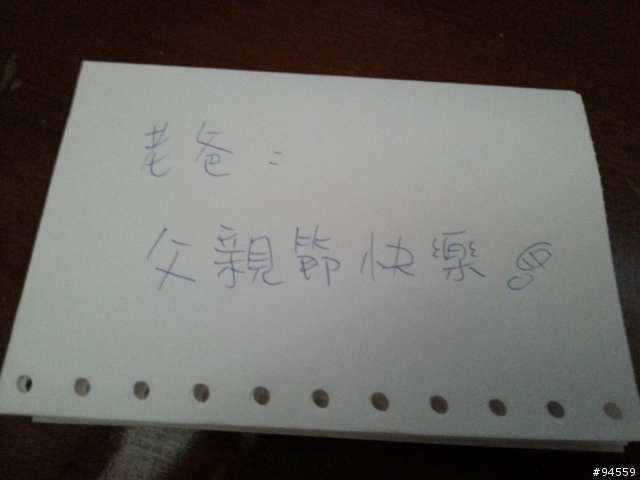 老爸：
父親節快樂!
#94559